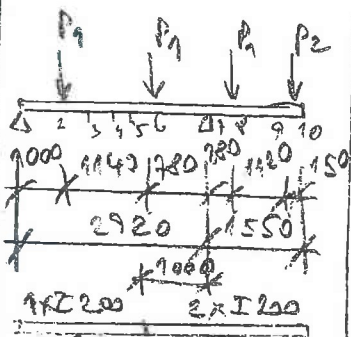 P1 P1 P1 P2
2 3 4 5 6 7 8 9 10
1000 1140 780 180 1120 150
2920 1550
1000
1xI200 2xI200